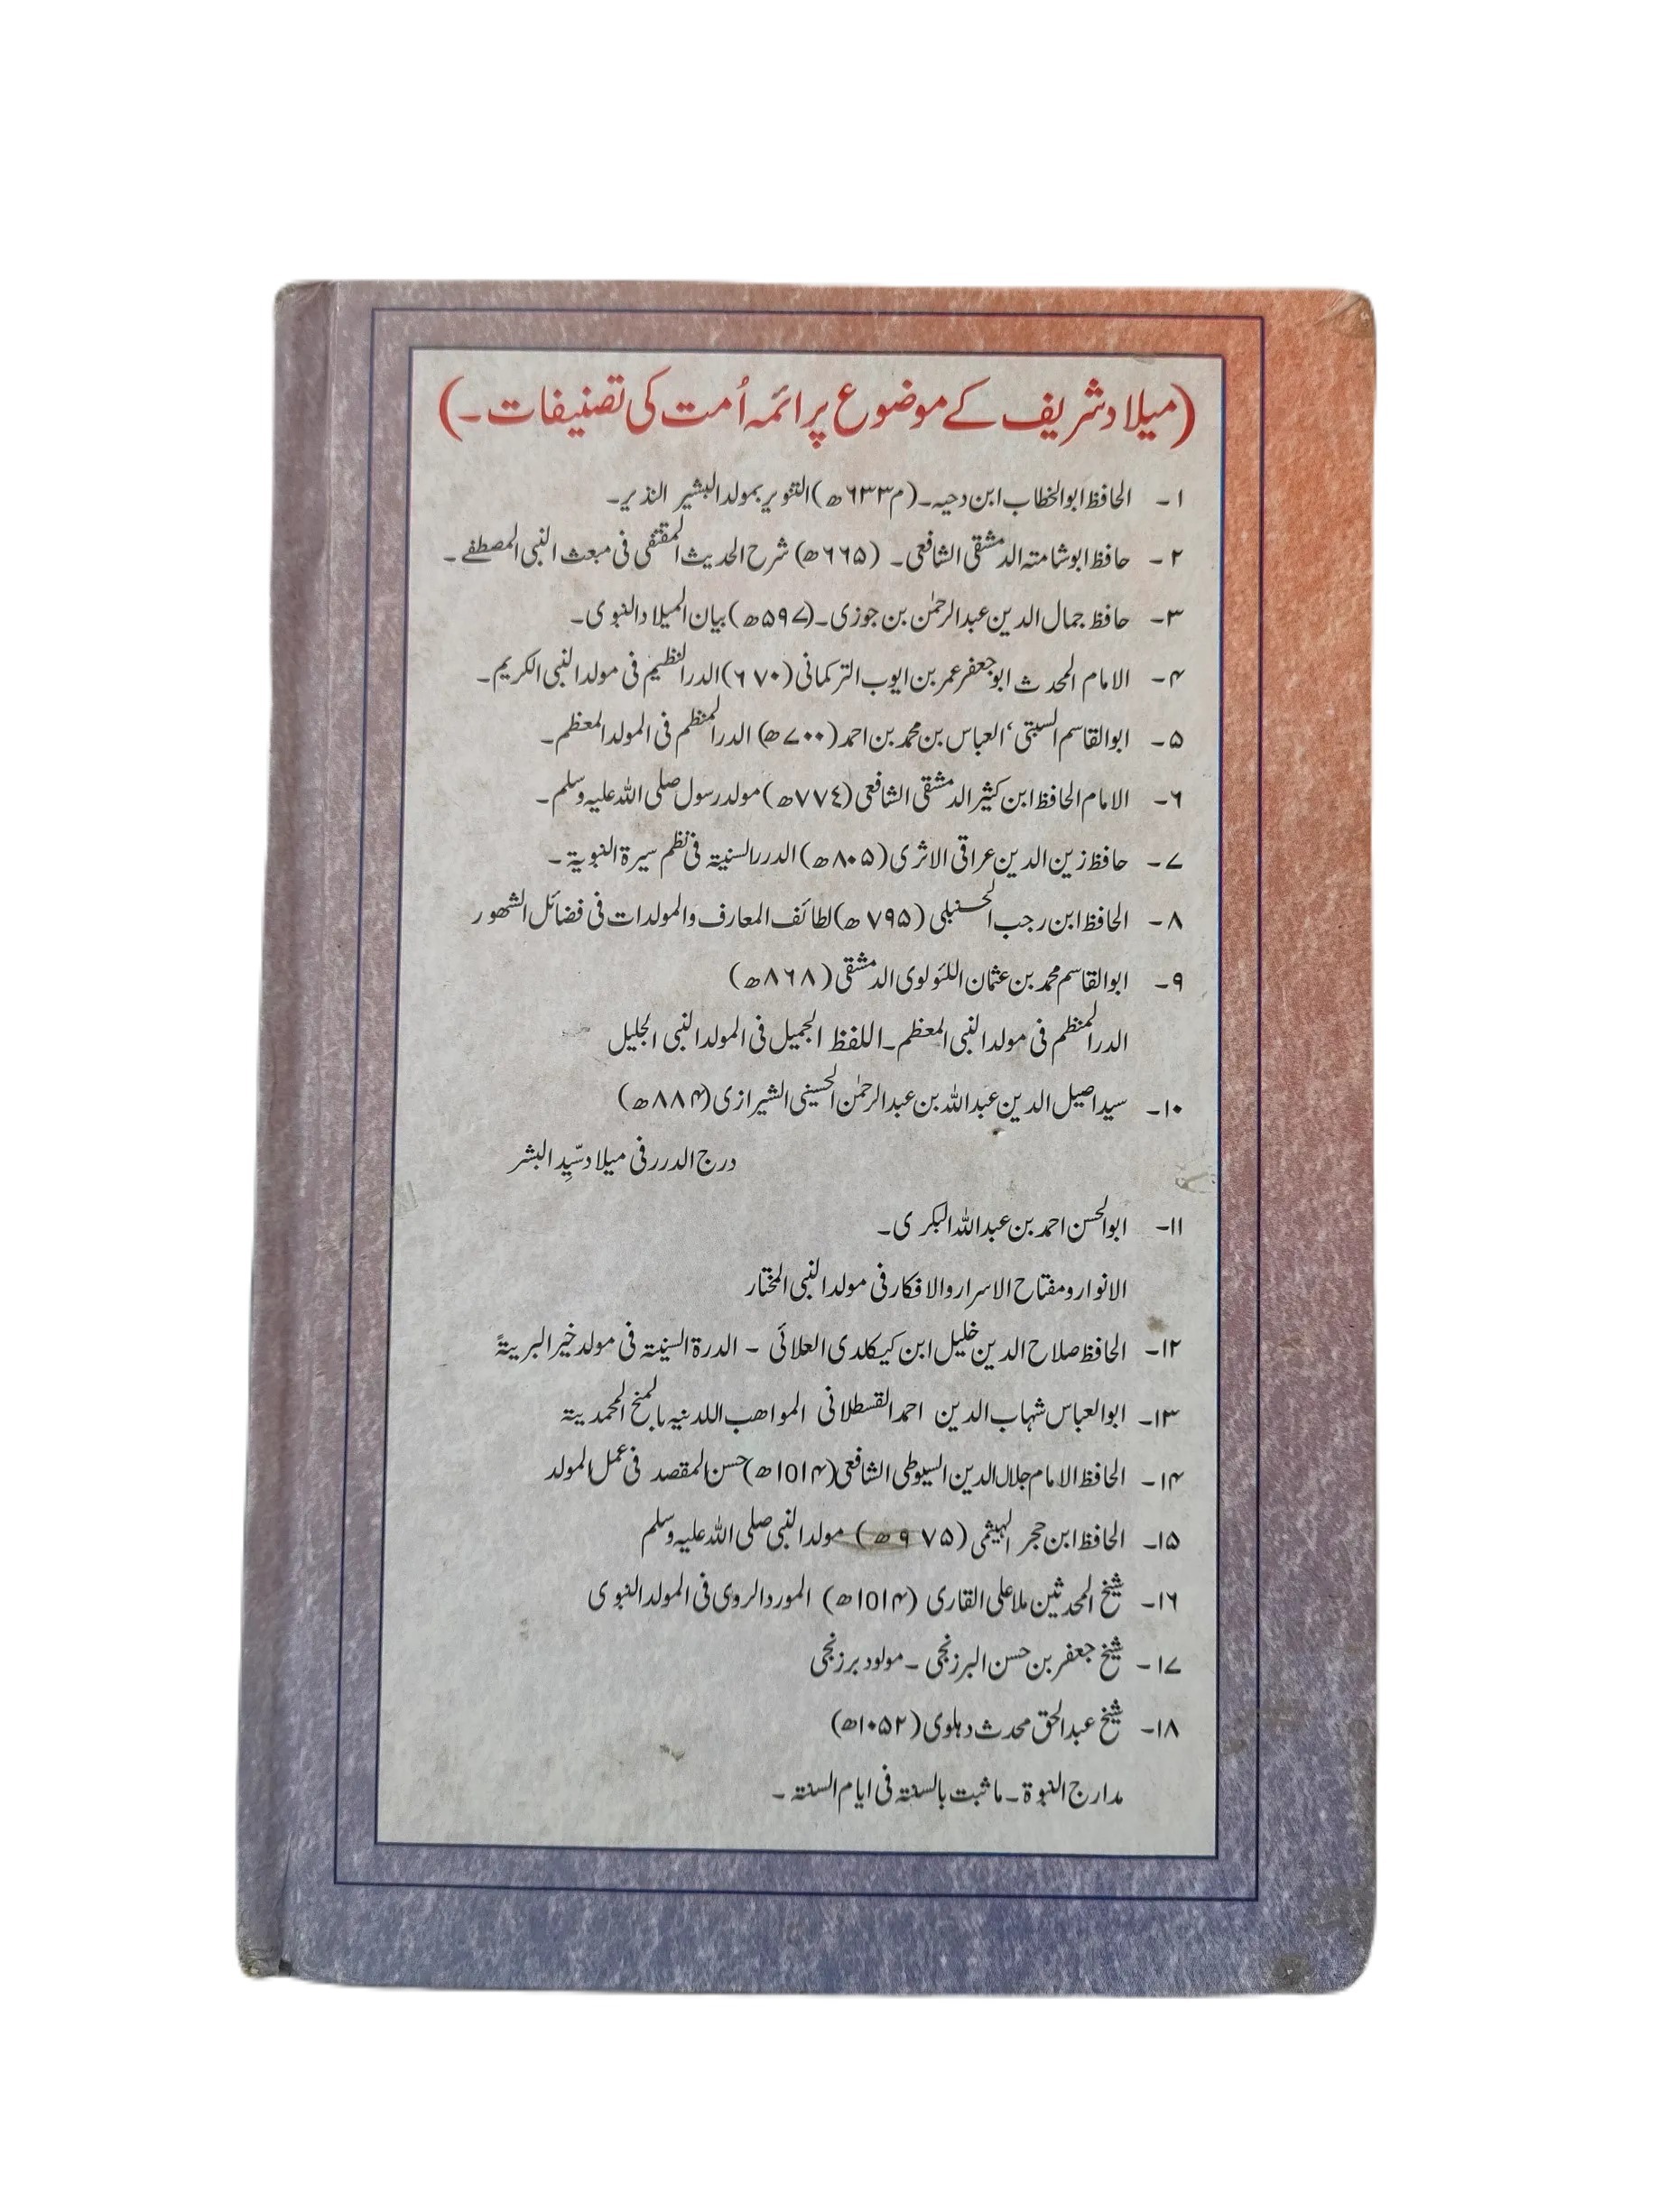 (میلاد شریف کے موضوع پر ائمہ اُمت کی تصنیفات۔)
۱۔ الحافظ ابوالخطاب ابن دحیہ۔ (م ۶۳۳ھ) التنویر بمولد البشیر النذیر۔
۲۔ حافظ ابو شامتہ الدمشقی الشافعی۔ (۶۶۵ھ) شرح الحدیث المقتفی فی مبعث النبی المصطفے۔
۳۔ حافظ جمال الدین عبدالرحمٰن بن جوزی۔ (۵۹۷ھ) بیان المیلاد النبوی۔
۴۔ الامام المحدث ابو جعفر عمر بن ایوب الترکمانی (۶۷۰) الدر النظیم فی مولد النبی الکریم۔
۵۔ ابوالقاسم السبتی، العباس بن محمد بن احمد (۷۰۰ھ) الدر المنظم فی المولد المعظم۔
۶۔ الامام الحافظ ابن کثیر الدمشقی الشافعی (۷۷۴ھ) مولد رسول صلی اللہ علیہ وسلم۔
۷۔ حافظ زین الدین عراقی الاثری (۸۰۵ھ) الدرر السنیۃ فی نظم سیرۃ النبویۃ۔
۸۔ الحافظ ابن رجب الحنبلی (۷۹۵ھ) لطائف المعارف والمولدات فی فضائل الشھور
۹۔ ابوالقاسم محمد بن عثمان اللئولوی الدمشقی (۸۶۸ھ)
الدر المنظم فی مولد النبی المعظم۔ اللفظ الجمیل فی المولد النبی الجلیل
۱۰۔ سید اصیل الدین عبداللہ بن عبدالرحمٰن الحسینی الشیرازی (۸۸۴ھ)
درج الدرر فی میلاد سیّدِ البشر
۱۱۔ ابوالحسن احمد بن عبداللہ البکری۔
الانوار و مفتاح الاسرار والافکار فی مولد النبی المختار
۱۲۔ الحافظ صلاح الدین خلیل ابن کیکلدی العلائی ۔ الدرۃ السنیۃ فی مولد خیر البریۃ
۱۳۔ ابوالعباس شہاب الدین احمد القسطلانی المواھب اللدنیہ بالمنح المحمدیۃ
۱۴۔ الحافظ الامام جلال الدین السیوطی الشافعی (۱۵۱۴ھ) حسن المقصد فی عمل المولد
۱۵۔ الحافظ ابن حجر الہیثمی (۹۷۵ھ) مولد النبی صلی اللہ علیہ وسلم
۱۶۔ شیخ المحدثین ملا علی القاری (۱۵۱۴ھ) المورد الروی فی المولد النبوی
۱۷۔ شیخ جعفر بن حسن البرزنجی ۔ مولود برزنجی
۱۸۔ شیخ عبدالحق محدث دہلوی (۱۰۵۲ھ)
مدارج النبوۃ۔ ما ثبت بالسنۃ فی ایام السنۃ۔